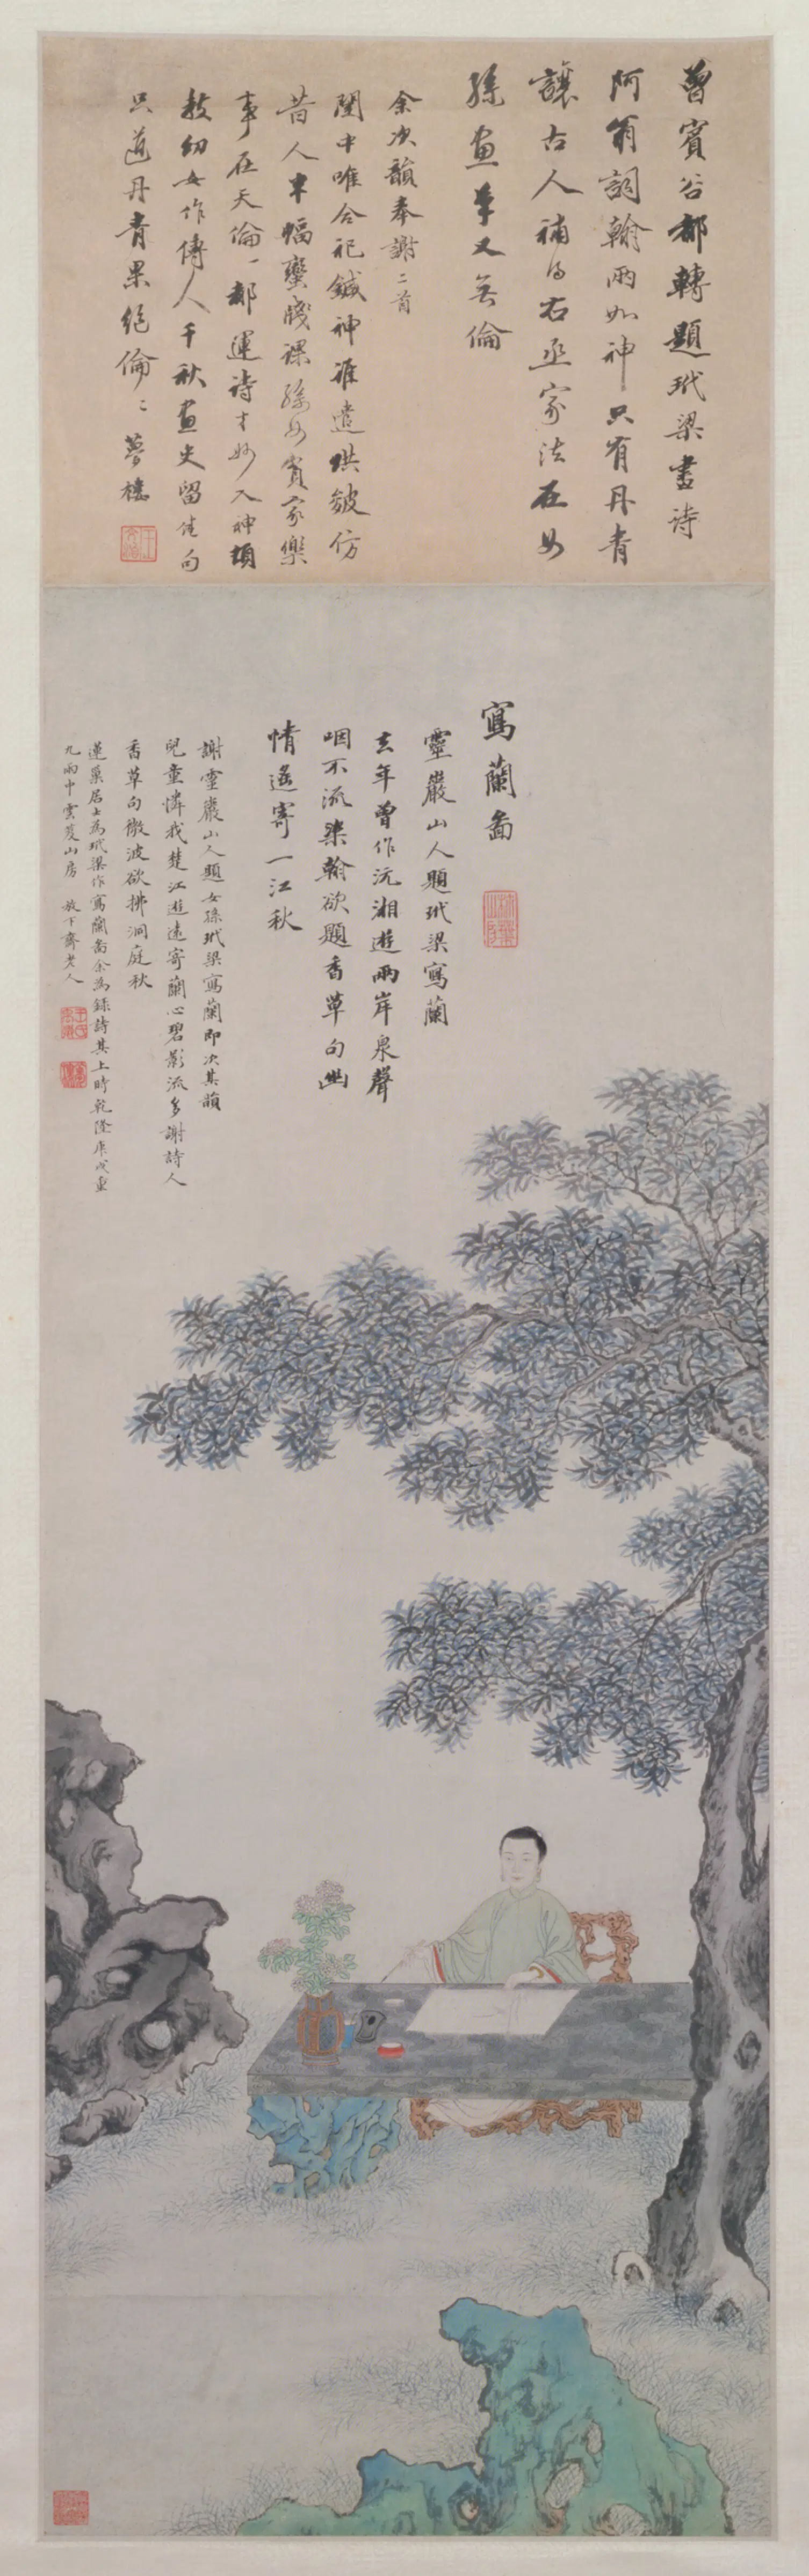 曾賓谷都轉題玳梁畫詩
阿翁詞翰兩如神只有丹青
讓古人補得右丞家法在女
孫畫筆又無倫
余次韻奉謝二首
閨中唯合祀鍼神誰遣拱毫仿
昔人半幅蠻牋課孫女貧家樂
事在天倫一都運詩才妙入神頻
教幼女作傳人千秋畫史留佳句
只道丹青果絕倫二夢樓
寫蘭圖
靈巖山人題玳梁寫蘭
去年曾作沅湘遊兩岸泉聲
咽不流染翰欲題香草句幽
情遙寄一江秋
謝靈巖山人題女孫玳梁寫蘭即次其韻
兒童憐我楚江遊遠寄蘭心碧影流多謝詩人
香草句微波欲拂洞庭秋
蓮巢居士為玳梁作寫蘭圖余為錄詩其上時乾隆庚戌重
九雨中雲笈山房 放下齋老人